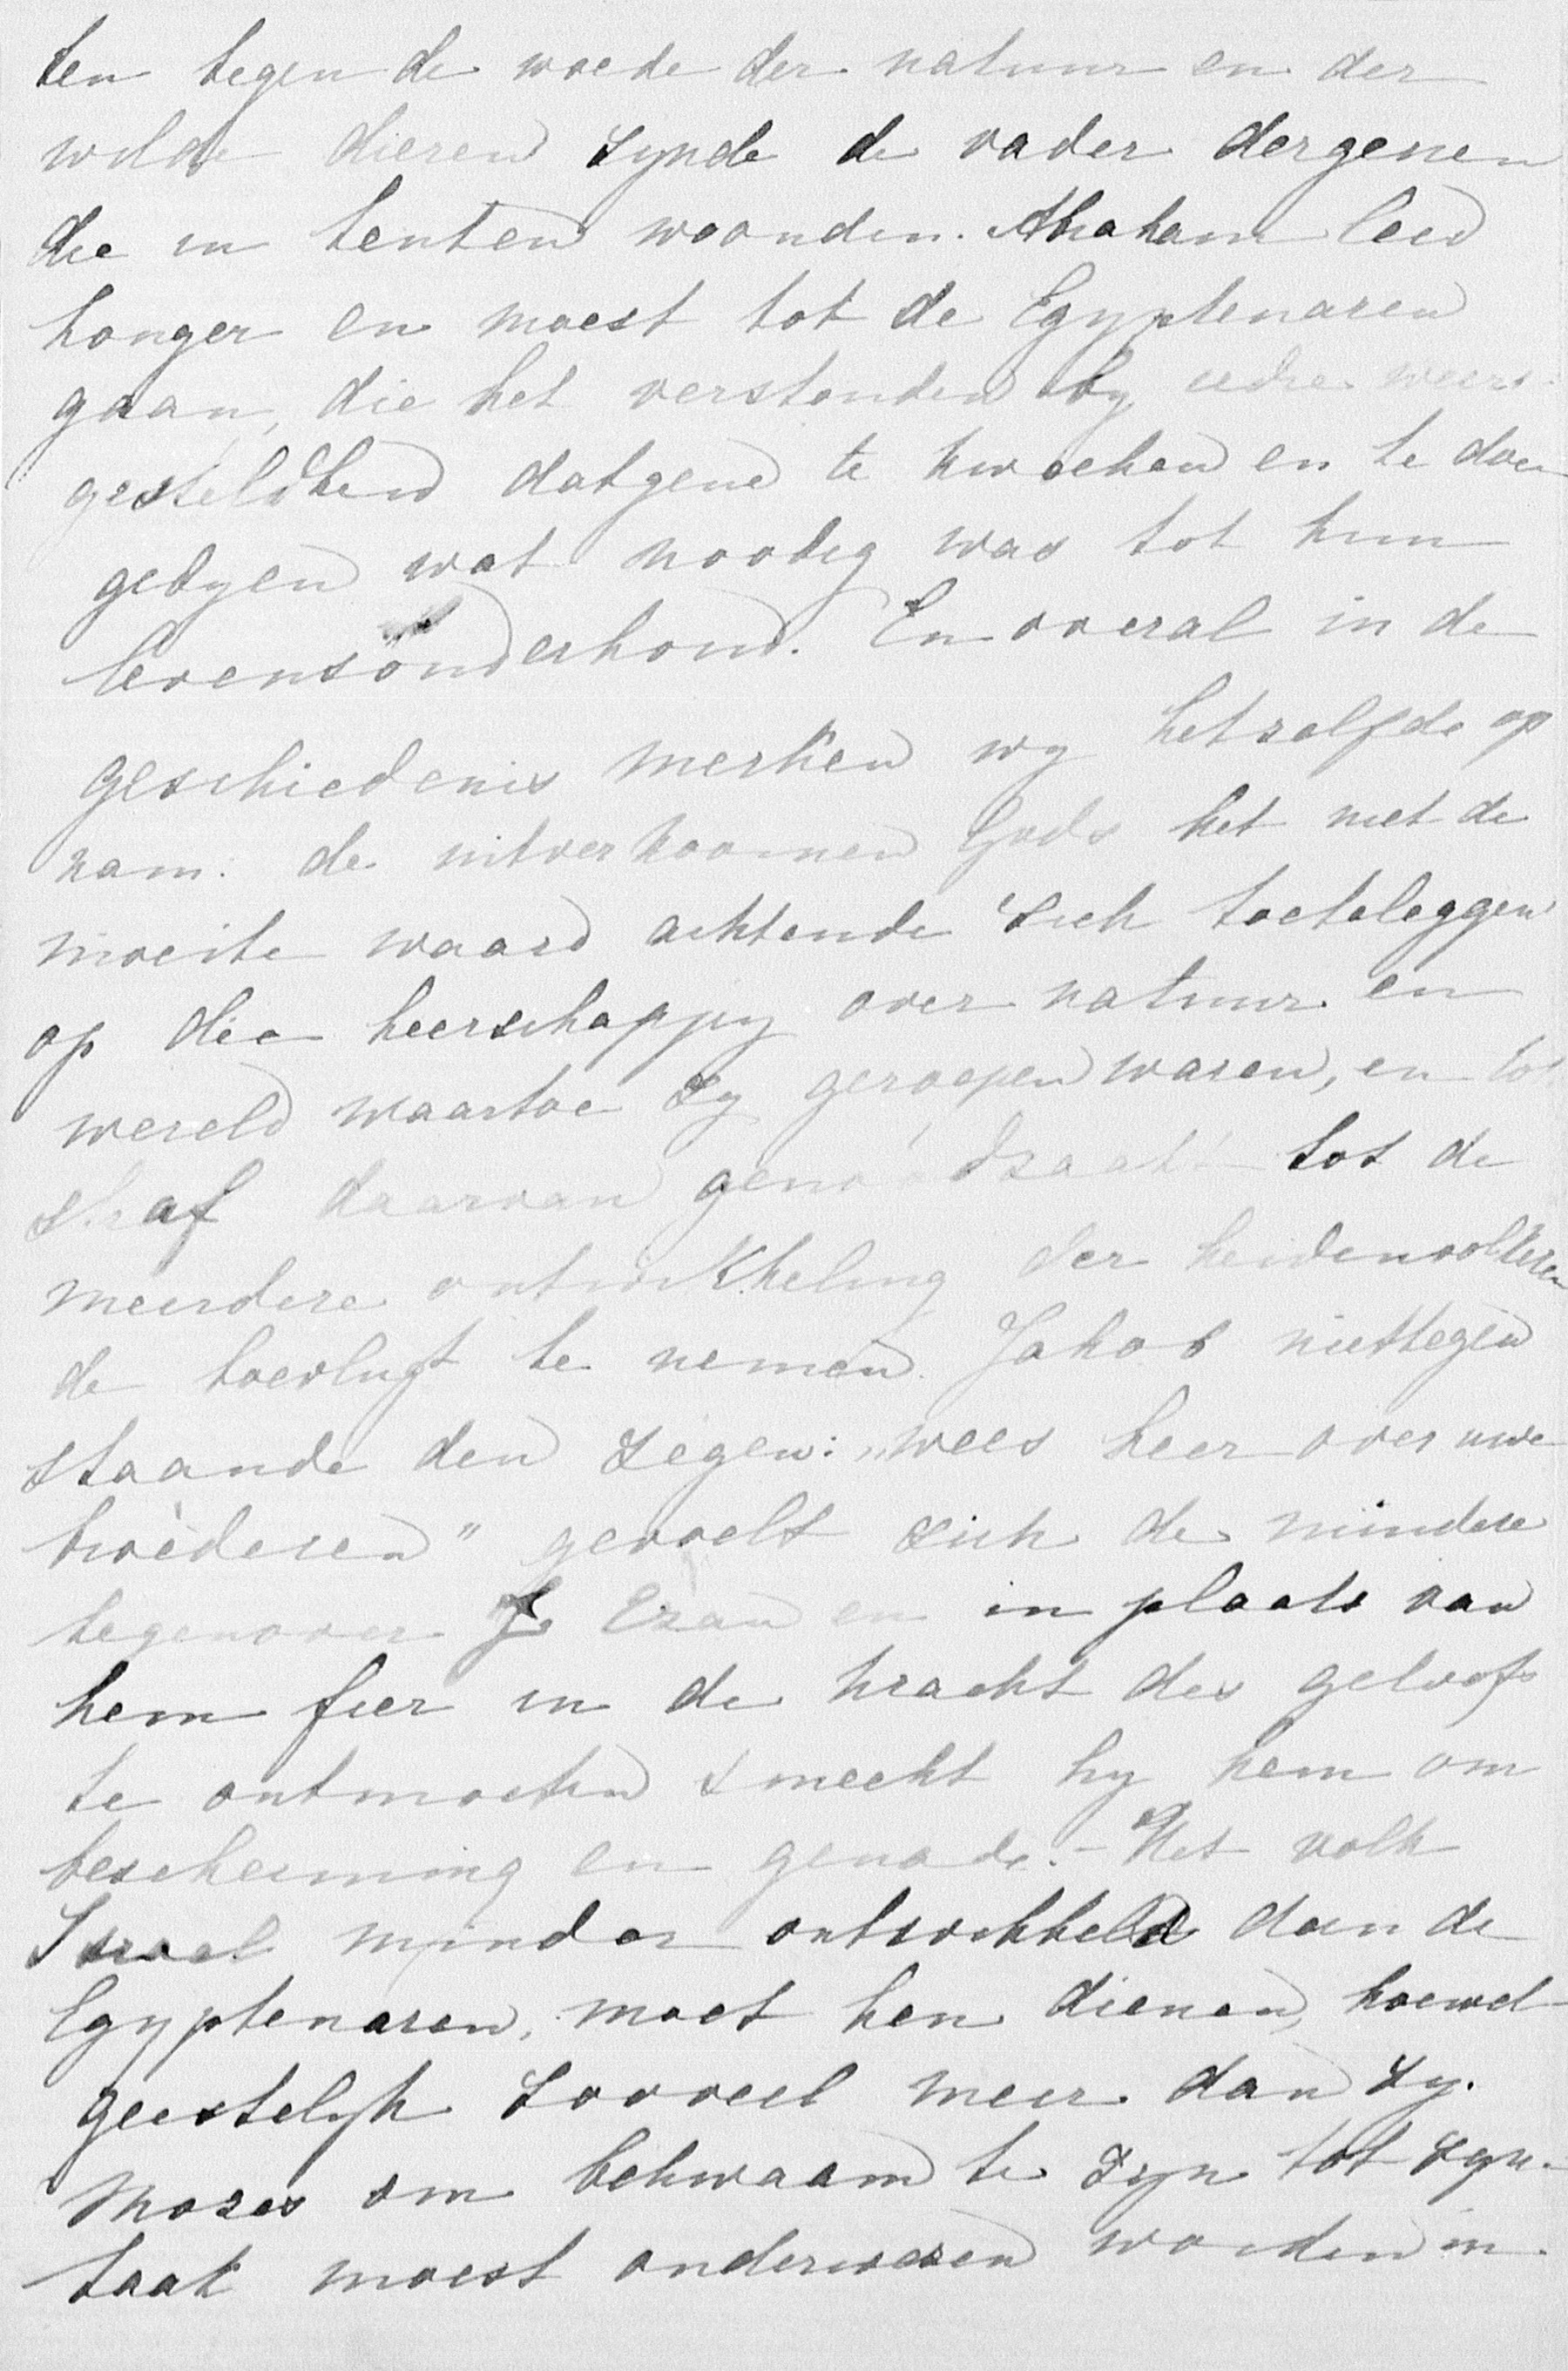 ten tegen de woede der natuur en der
wilde dieren zynde de vader dergenen
die in tenten woonden. Abraham leed
honger en moest tot de Egyptenaren
gaan, die het verstonden by iedre weers-
gesteldheid datgene te kweeken en te doen
gedyen wat noodig was tot hun
levensonderhoud. En overal in de
geschiedenis merken wy hetzelfde op
nam. de uitverkoornen Gods het niet de
moeite waard achtende zich toeteleggen
op die heerschappy over natuur en
wereld waartoe zy geroepen waren, en tot
straf daarvan genoodzaakt tot de
meerdere ontwikkheling der heidenvolkeren
de toevlugt te nemen. Jakob niettegen
staande den zegen: „wees heer over uwe
broederen" gevoelt zich de mindere
tegenover Ezau en in plaats van
hem fier in de kracht des geloofs
te ontmoeten smeekt hy hem om
bescherming en genade. - Het volk
Israel minder ontwikkeld dan de
Egyptenaren, moet hen dienen, hoewel
geestelyk zooveel meer dan zy.
Mozes om bekwaam te zyn tot zyn
taak moest onderwezen worden in